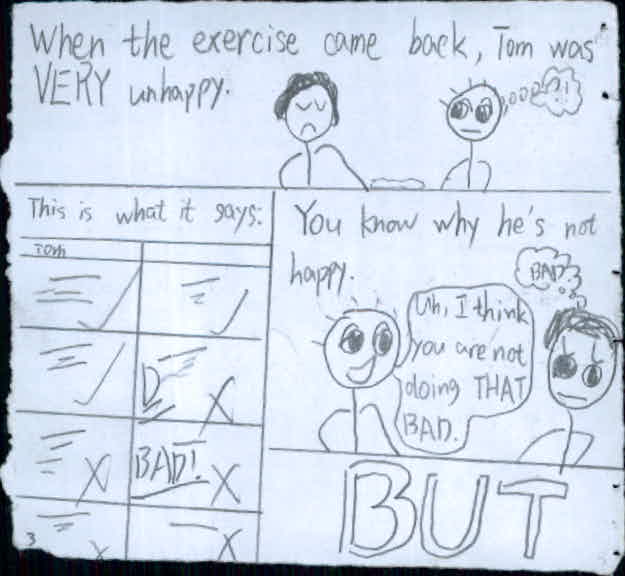 When the exercise came back, Tom was
VERY unhappy.
?!
This is what it says:
Tom
D
BAD!
3
You know why he's not
happy.
BAD?
Uh, I think
you are not
doing THAT
BAD.
BUT